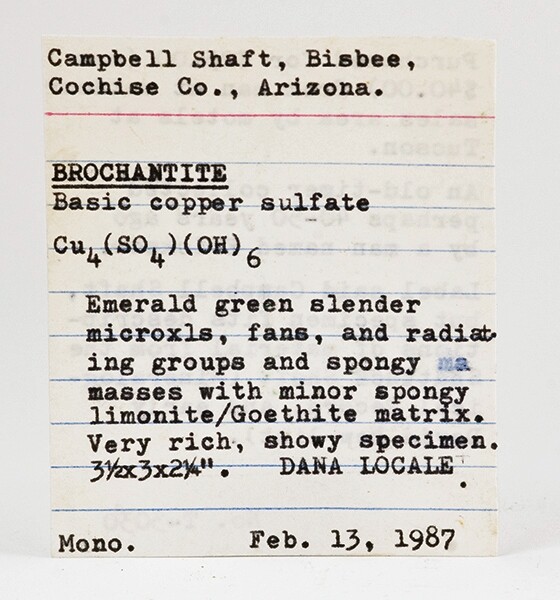 Campbell Shaft, Bisbee,
Cochise Co., Arizona.
BROCHANTITE
Basic copper sulfate
Cu4(SO4)(OH)6
Emerald green slender
microxls, fans, and radiat-
ing groups and spongy ma
masses with minor spongy
limonite/Goethite matrix.
Very rich, showy specimen.
3½x3x2¼". DANA LOCALE.
Mono. Feb. 13, 1987